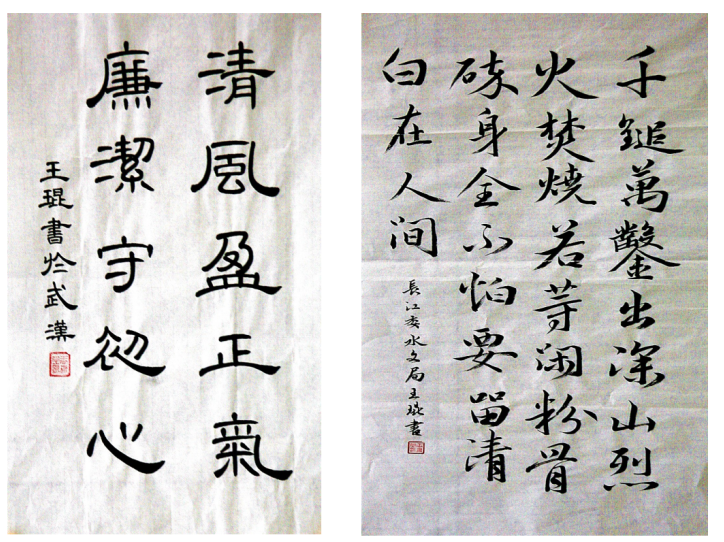 清風盈正氣
廉潔守初心
王琨書於武漢
千鎚萬鑿出深山烈
火焚燒若等闲粉骨
碎身全不怕要留清
白在人间
長江委水文局王琨書